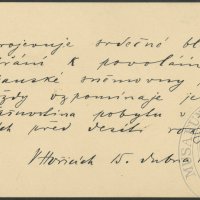 rojevuje srdečné bl
ání k povolán
anské sněmovny
dy vzpomínaje je
pobytu v
ch před deseti ro
V Hořicích 15. dubna
MUSA